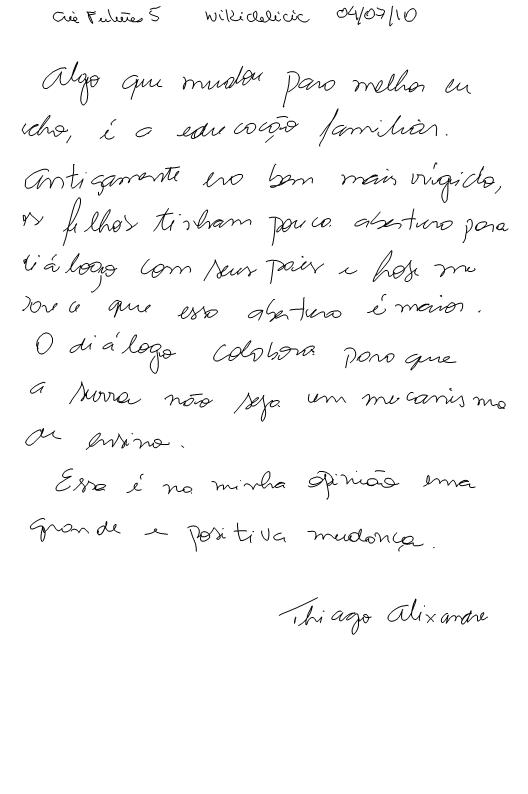 5 Wikidelicia 04/07/10
Algo que mudou para melhor eu
acho, é a educação familiar.
Antigamente era bem mais rígido,
os filhos tinham pouca abertura para
diálogo com seus pais e hoje me
parece que essa abertura é maior.
O diálogo colabora para que
a surra não seja um mecanismo
de ensino.
Essa é na minha opinião uma
grande e positiva mudança.
Thiago Alixandre